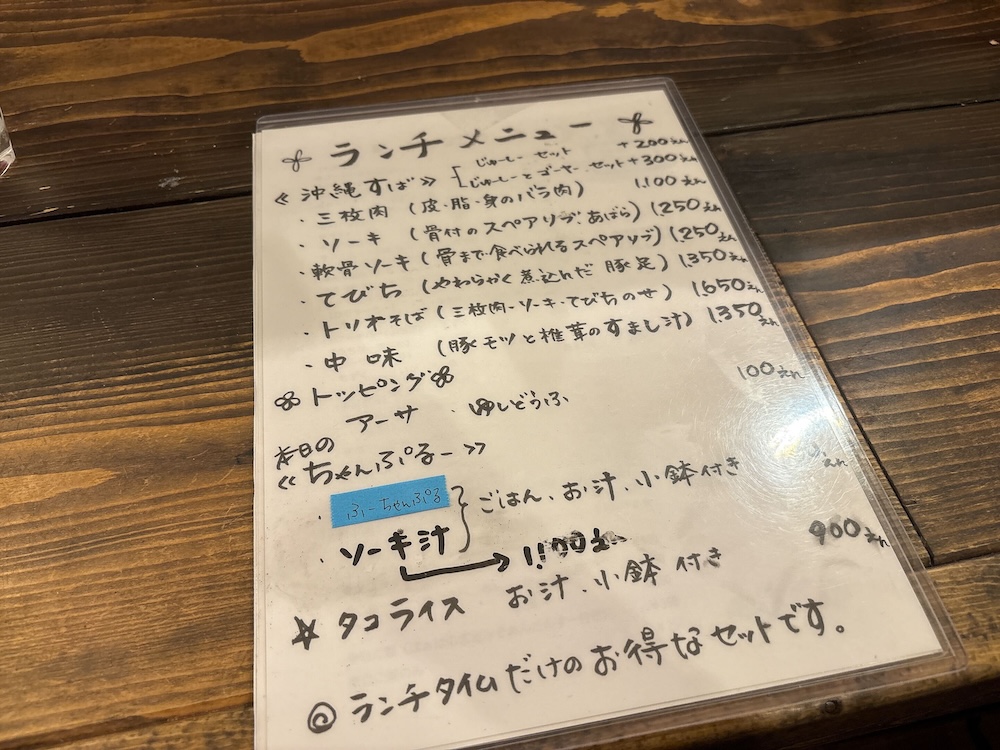 ランチメニュー
じゅーしーセット +200えん
≪沖縄すば≫ じゅーしーとゴーヤーセット+300えん
・三枚肉 (皮・脂・身のバラ肉) 1,100えん
・ソーキ (骨付のスペアリブ・あばら) 1,250えん
・軟骨ソーキ (骨まで食べられるスペアリブ) 1,250えん
・てびち (やわらかく煮込んだ豚足) 1,350えん
・トリオそば (三枚肉・ソーキ・てびちのせ) 1,650えん
・中味 (豚モツと椎茸のすまし汁) 1,350えん
トッピング
アーサ・ゆしどうふ 100えん
本日の
≪ちゃんぷるー≫
・ふーちゃんぷる ごはん、お汁、小鉢付き えん
・ソーキ汁 → 1,100えん
☆タコライス お汁、小鉢付き 900えん
◎ランチタイムだけのお得なセットです。